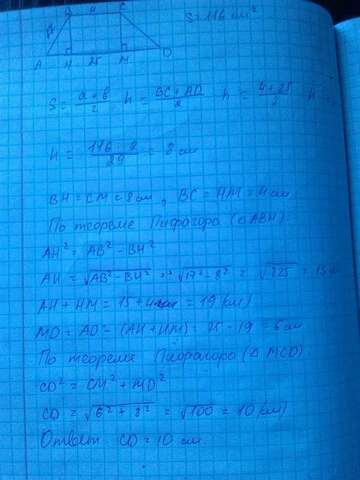 B 4 C
S=116 см²
A H 25 M D
S = a+b/2 · h = BC+AD/2 · h = 4+25/2 · h
h = 116·2/29 = 8 см
BH = CM = 8 см, BC = HM = 4 см
По теореме Пифагора (△ABH):
AH² = AB² - BH²
AH = √AB² - BH² = √17² - 8² = √225 = 15 см
AH + HM = 15 + 4 = 19 (см)
MD = AD - (AH + HM) = 25 - 19 = 6 см
По теореме Пифагора (△ MCD)
CD² = CM² + MD²
CD = √6² + 8² = √100 = 10 (см)
Ответ CD = 10 см.